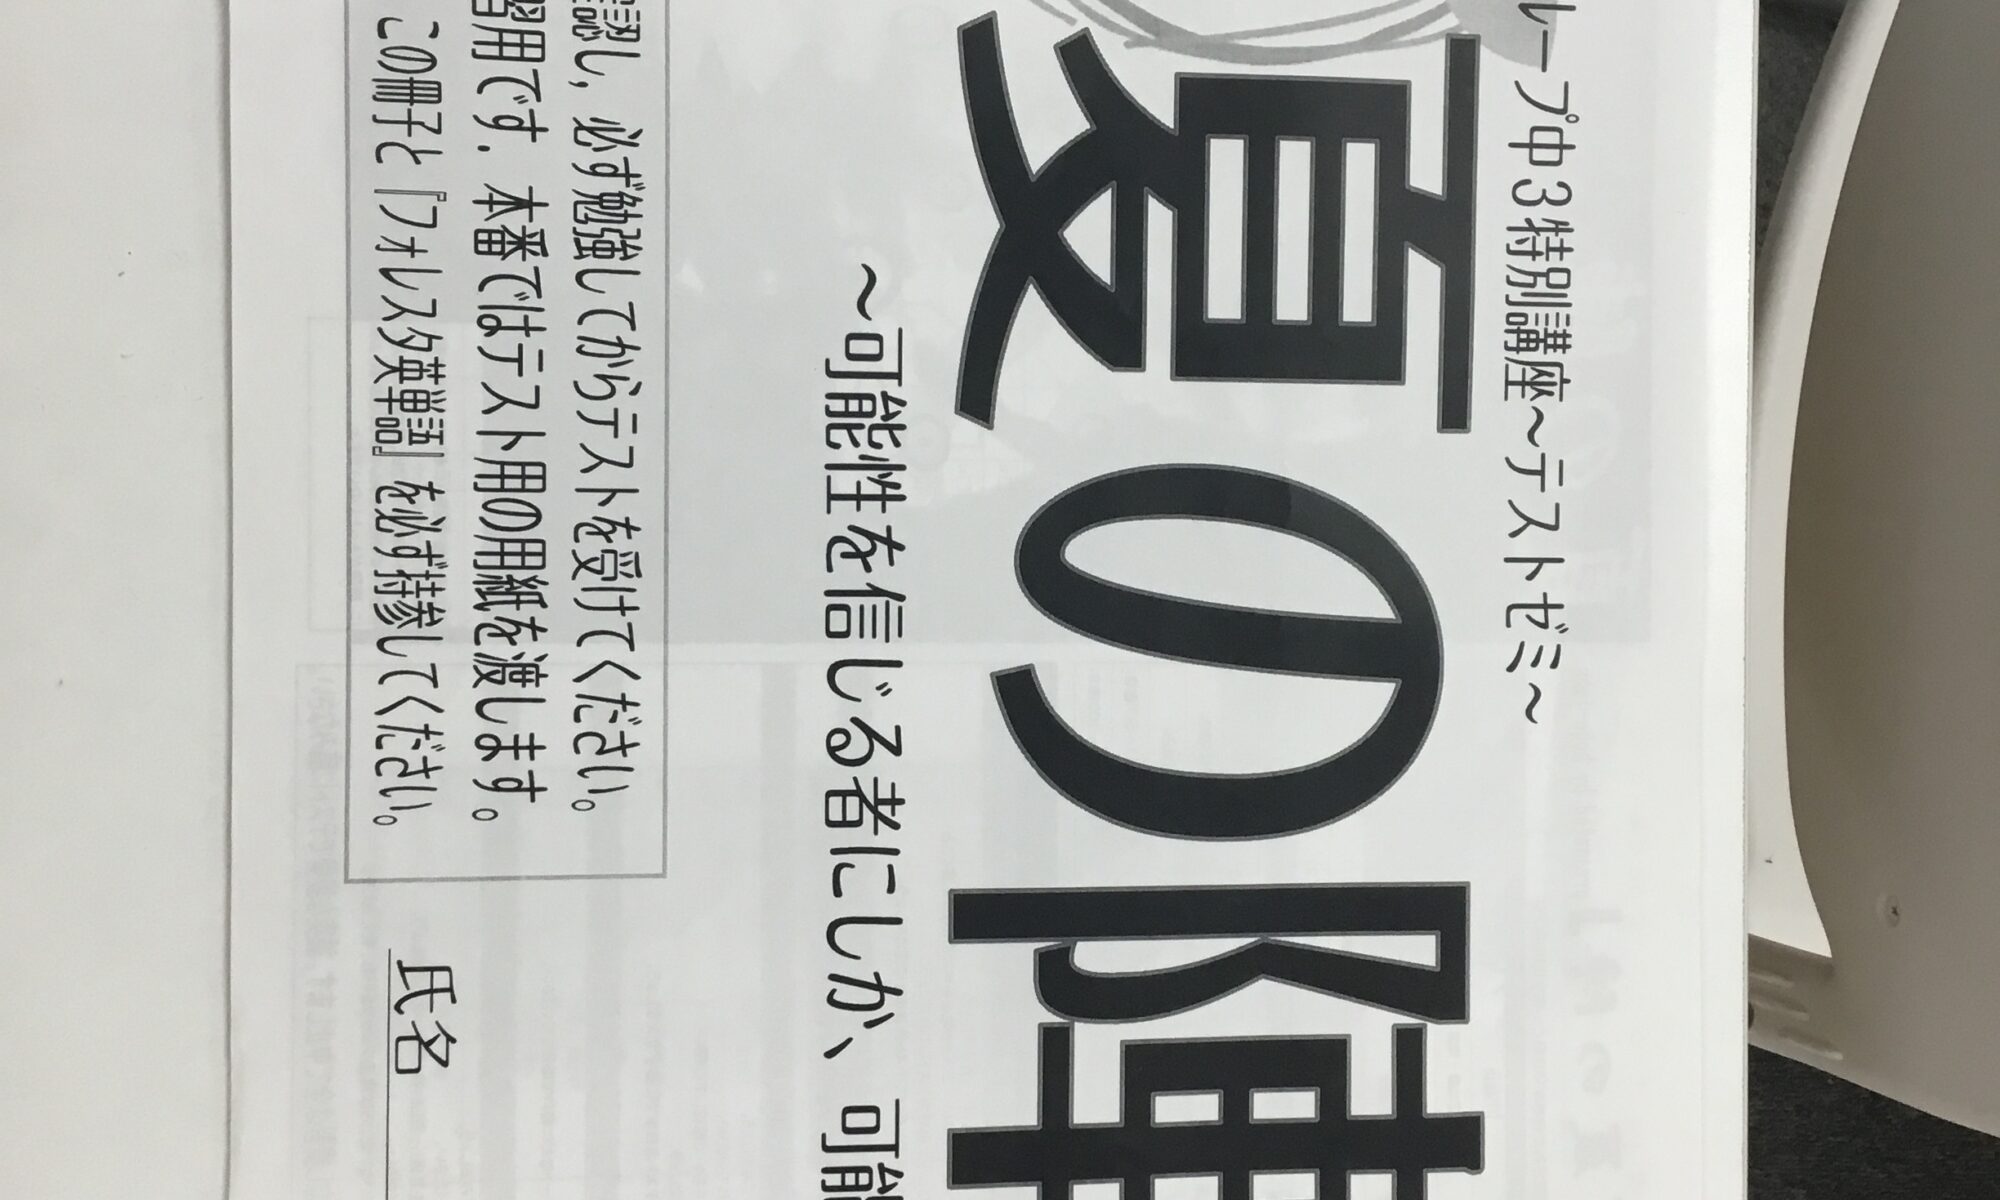 レープ中3特別講座～テストゼミ～
夏の陣
～可能性を信じる者にしか、可能
認し，必ず勉強してからテストを受けてください。
習用です．本番ではテスト用の用紙を渡します。
この冊子と『フォレスタ英単語』を必ず持参してください。
氏名